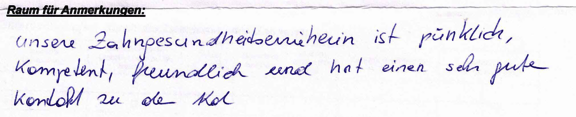 Raum für Anmerkungen:
unsere Zahngesundheitserzieherin ist pünklich,
kompetent, freundlich und hat einen sehr gute
Kontakt zu de Kd